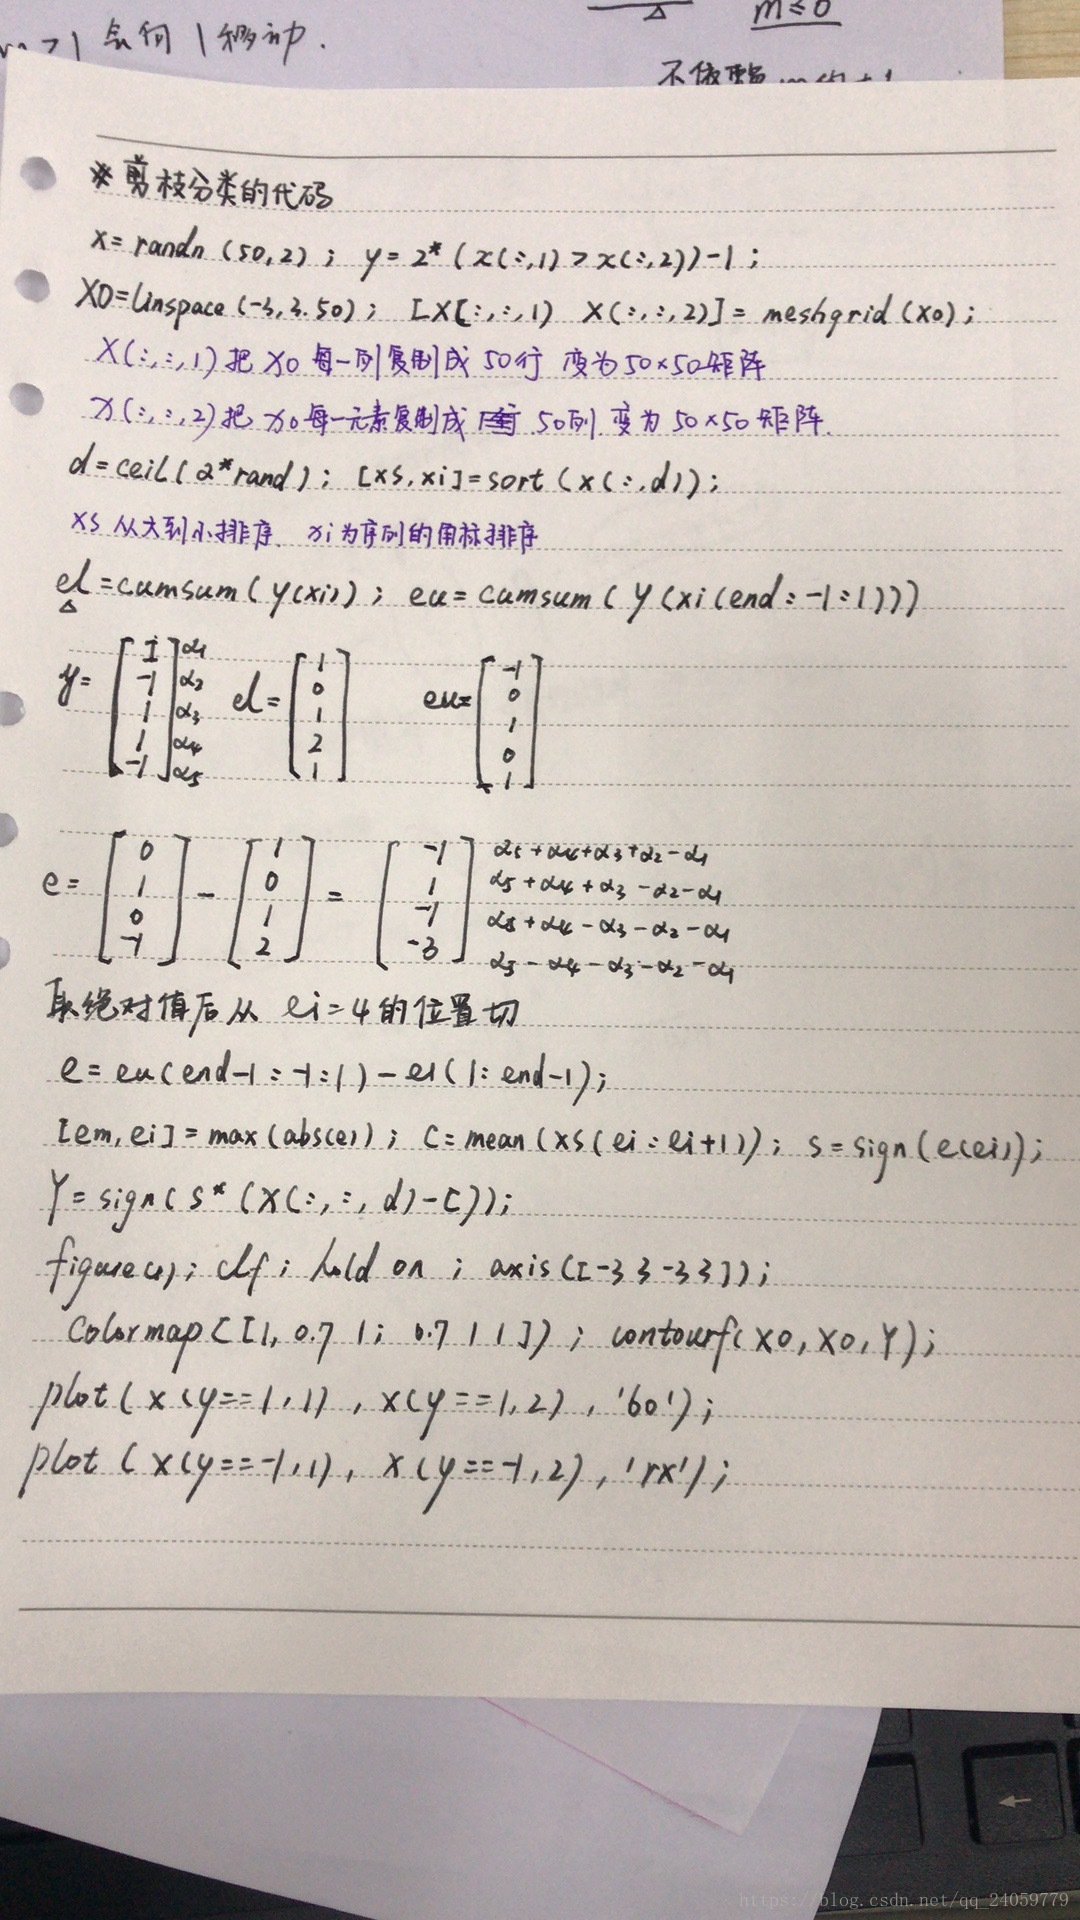 会向1移动.
m≤0
不依赖
※剪枝分类的代码
x=randn(50,2); y=2*(x(:,1)>x(:,2))-1;
X0=linspace(-3,3.50); [X[:,:,1) X(:,:,2)]=meshgrid(X0);
X(:,:,1)把x0每一列复制成50行 变为50×50矩阵
x(:,:,2)把x0每一元素复制成 50列.变为50×50矩阵.
d=ceil(2*rand); [xs,xi]=sort(x(:,d));
xs从大到小排序. xi为序列的角标排序
el=cumsum(y(xi)); eu=cumsum(y(xi(end:-1:1)))
Δ
y=[1 -1 1 1 -1] α1 α2 α3 α4 α5 el=[1 0 1 2 1] eu=[-1 0 1 0 1]
e=[0 1 0 -1]-[1 0 1 2]=[-1 1 -1 -3]
α5+α4+α3+α2-α1
α5+α4+α3-α2-α1
α5+α4-α3-α2-α1
α5-α4-α3-α2-α1
取绝对值后从 ei=4的位置切
e=eu(end-1:-1:1)-el(1:end-1);
[em,ei]=max(abs(e)); C=mean(xs(ei:ei+1)); s=sign(e(ei));
Y=sign(s*(X(:,:,d)-C));
figure(1); clf; hold on; axis([-3 3 -3 3]);
colormap([1,0.7 1; 0.7 1 1]); contourf(X0,X0,Y);
plot(x(y==1,1),x(y==1,2),'bo');
plot(x(y==-1,1),x(y==-1,2),'rx');
https://blog.csdn.net/qq_24059779